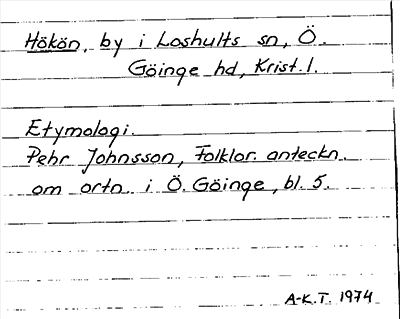 Hökön, by i Loshults sn, Ö.
Göinge hd, Krist. l.
Etymologi.
Pehr Johnsson, Folklor. anteckn.
om ortn. i Ö. Göinge, bl. 5.
A-K.T. 1974